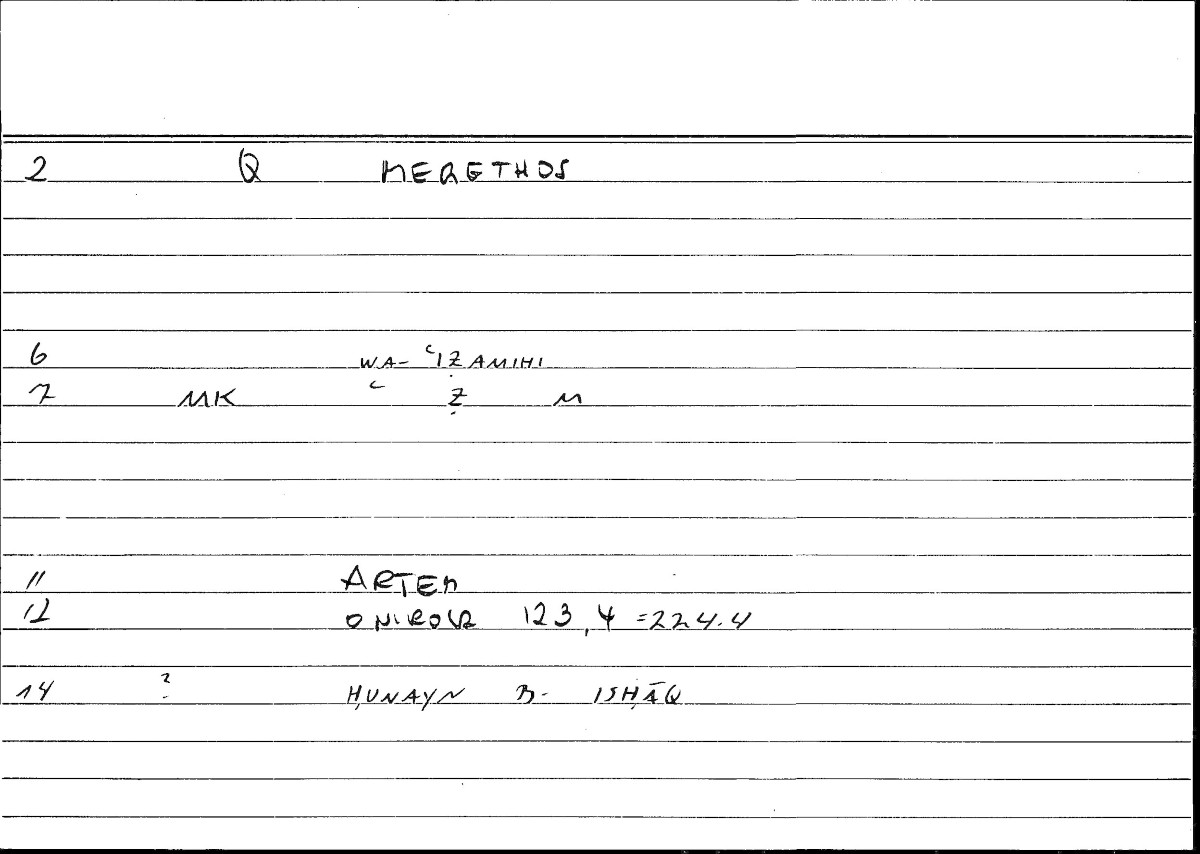 2 Q MEGETHOS
6 WA- ʿIẒAMIHI
7 MK ʿ Ẓ M
11 ARTEM
12 ONIROCR 123,4 =224.4
14 ? ḤUNAYN B- ISḤĀQ